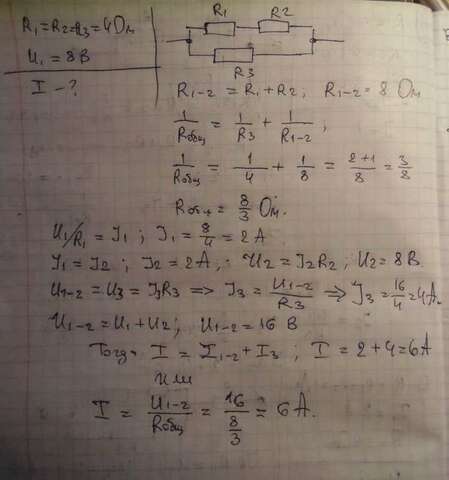 R₁=R₂=R₃=4 Ом
U₁ = 8 В
I – ?
R₁ R₂
R₃
R₁₋₂ = R₁+R₂; R₁₋₂ = 8 Ом
1/Rобщ = 1/R₃ + 1/R₁₋₂;
1/Rобщ = 1/4 + 1/8 = 2+1/8 = 3/8
Rобщ = 8/3 Ом.
U₁/R₁ = I₁; I₁ = 8/4 = 2 А
I₁ = I₂; I₂ = 2 А; U₂ = I₂R₂; U₂ = 8 В.
U₁₋₂ = U₃ = I₃R₃ => I₃ = U₁₋₂/R₃ => I₃ = 16/4 = 4 А.
U₁₋₂ = U₁ + U₂; U₁₋₂ = 16 В
Тогда I = I₁₋₂ + I₃; I = 2 + 4 = 6 А
или
I = U₁₋₂/Rобщ = 16/8/3 = 6 А.